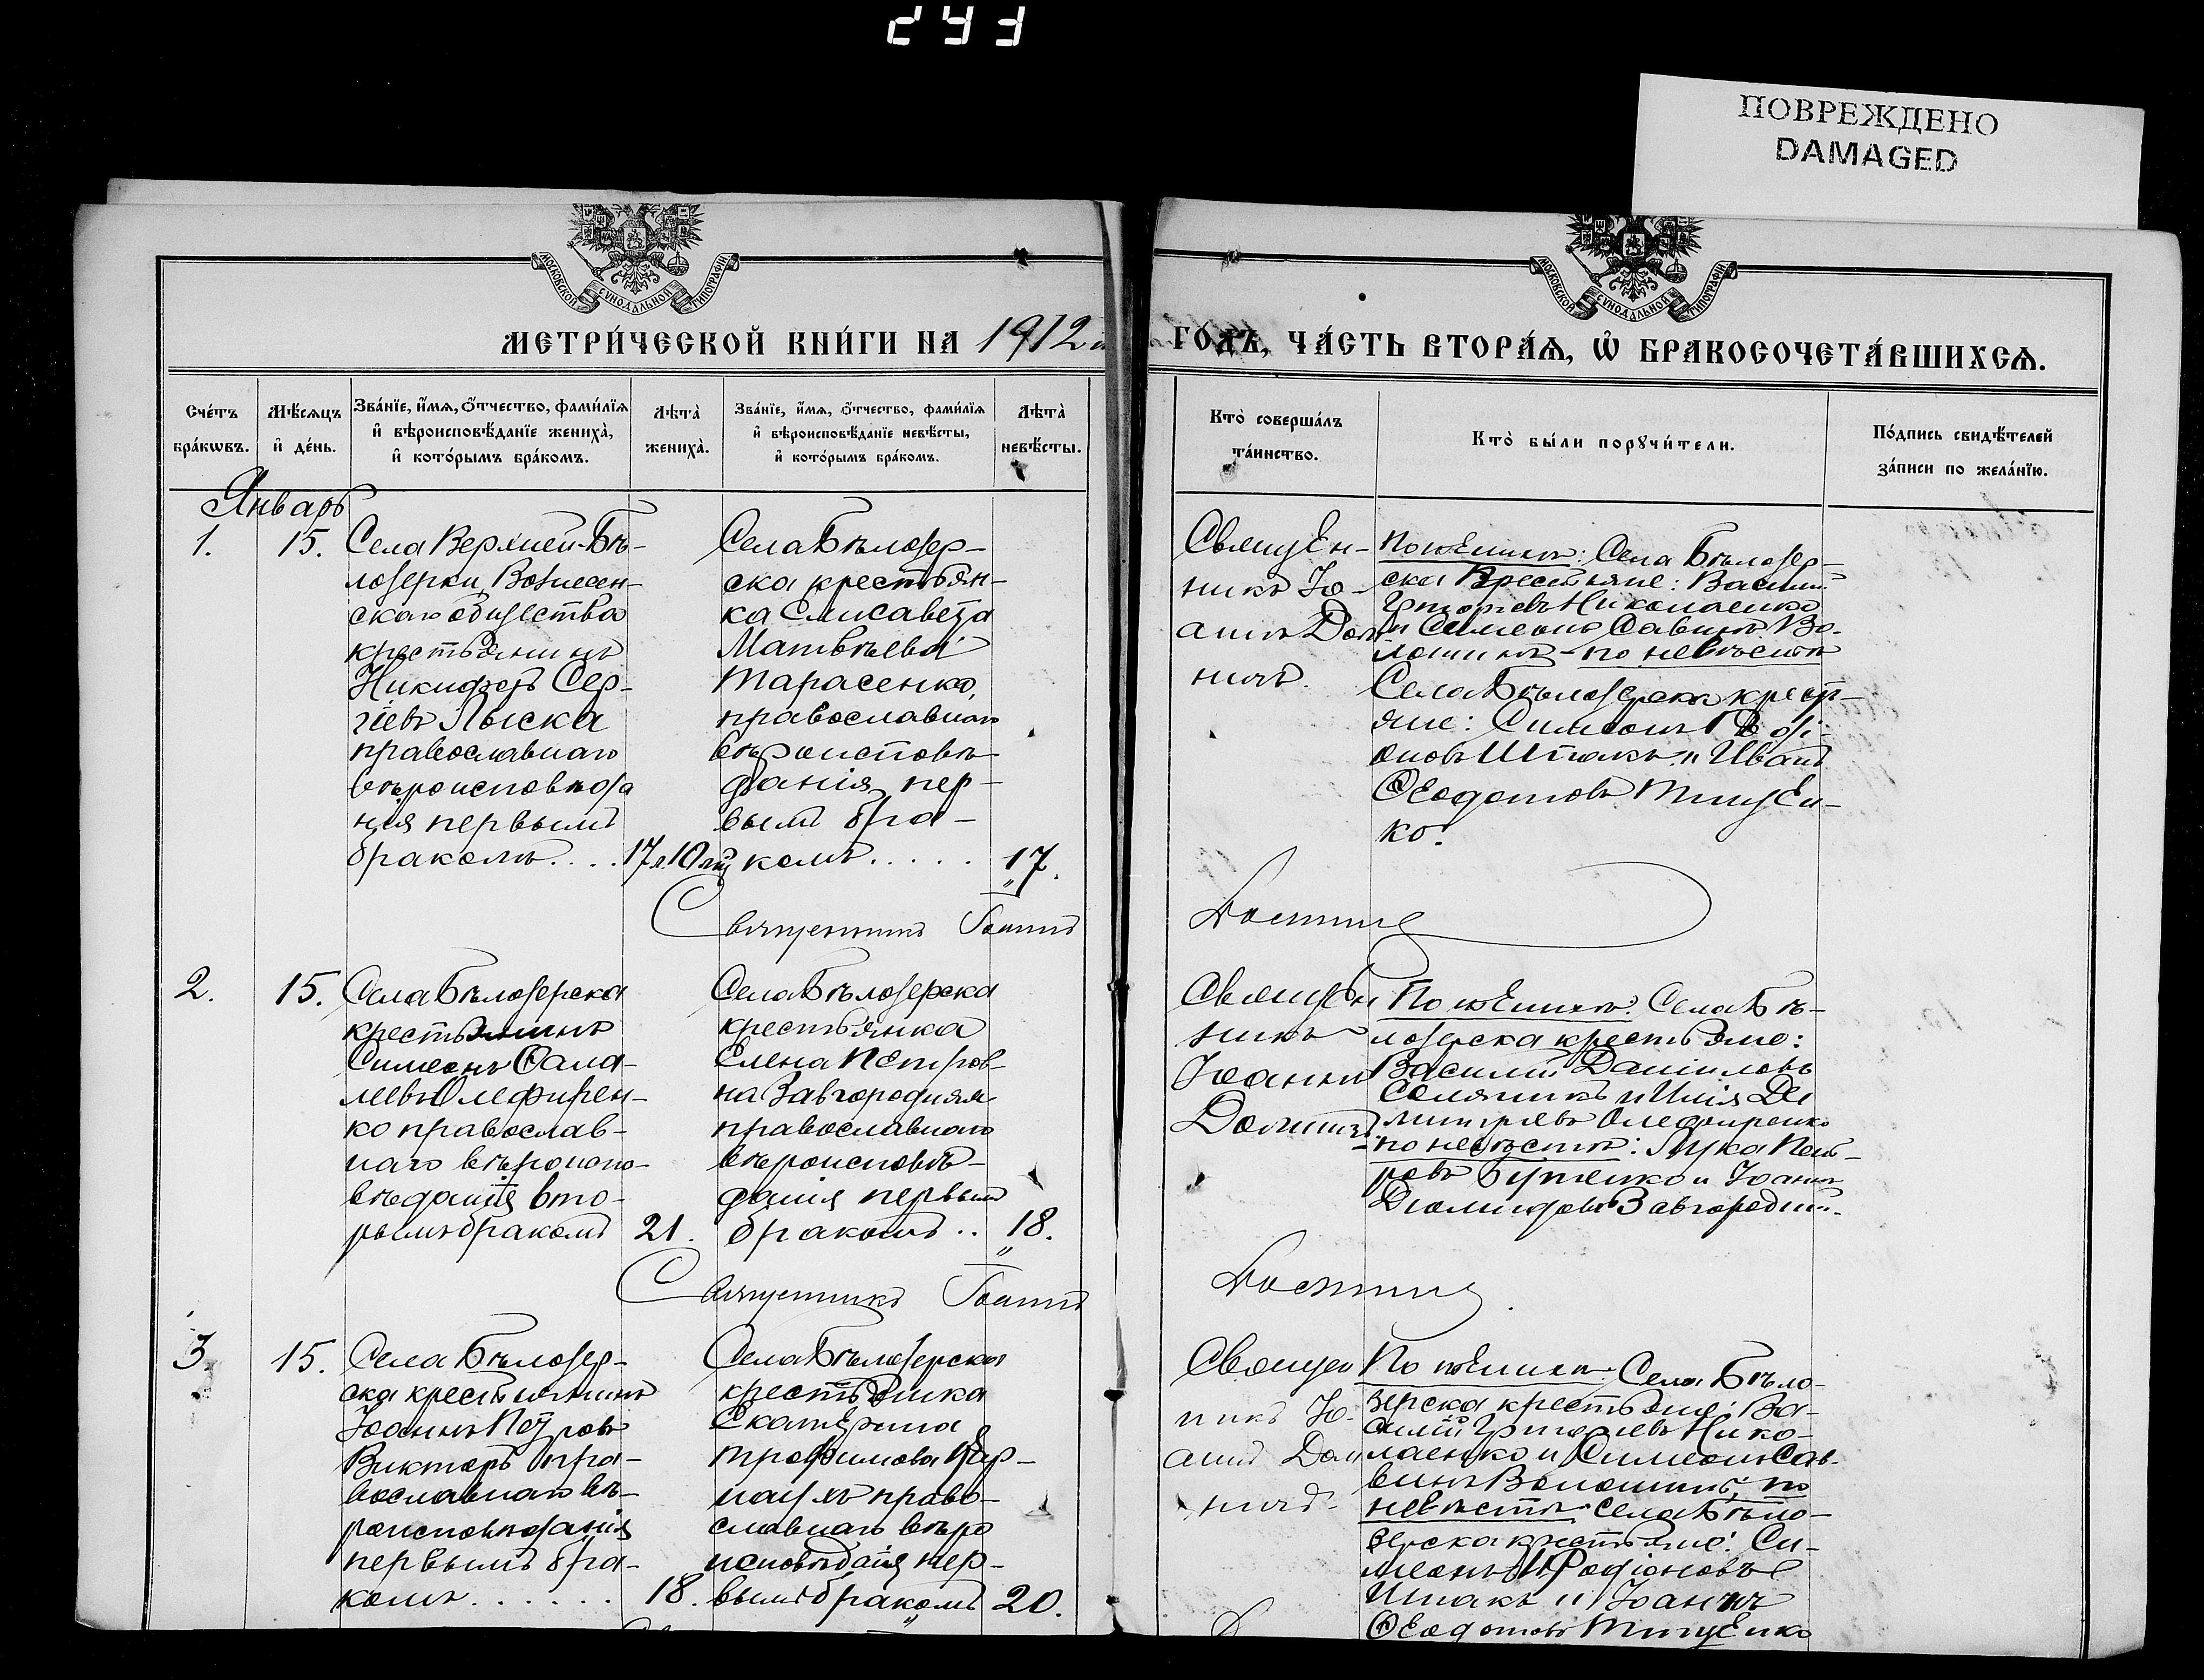 293
ПОВРЕЖДЕНО
DAMAGED
МОСКОВСКОЙ СѴНОДАЛЬНОЙ ТИПОГРАФІИ
МОСКОВСКОЙ СѴНОДАЛЬНОЙ ТИПОГРАФІИ
МЕТРИ́ЧЕСКОЙ КНИ́ГИ НА 1912
ГО́ДЪ, ЧА́СТЬ ВТОРА́Ѧ, Ѡ҆ БРАКОСОЧЕТА́ВШИХСѦ.
Сче́тъ
бра́кѡвъ.
Мѣ́сѧцъ
и҆ де́нь.
Зва́нїе, и҆́мѧ, ѻ҆́тчество, фами́лїѧ
и҆ вѣроисповѣ́данїе жениха̀,
и҆ кото́рымъ бра́комъ.
Лѣта̀
жениха̀.
Зва́нїе, и҆́мѧ, ѻ҆́тчество, фами́лїѧ
и҆ вѣроисповѣ́данїе невѣ́сты,
и҆ кото́рымъ бра́комъ.
Лѣта̀
невѣ́сты.
Кто̀ соверша́лъ
та́инство.
Кто̀ бы́ли порꙋчи́тели.
По́дпись свидѣ́телей
за́писи по жела́нїю.
Январь
1.
15.
Села Верхней-Бѣ-
лозерки, Вознесен-
скаго общества
крестьянинъ
Никифоръ Сер-
гіевъ Лыска
православнаго
вѣроисповѣда
нія первымъ
бракомъ....
17 л. 10 мц
Села Бѣлозер-
ска крестьян-
ка Елисавета
Матвѣева
Тарасенко,
православнаго
вѣроисповѣ-
данія, пер-
вымъ бра-
комъ.....
17.
Священ-
никъ Іо-
аннъ Дол
По женихѣ: Села Бѣлозер-
ска Крестьяне: Василій
Григорьевъ Николаенко
и Симеонъ Савинъ Во-
лошинъ - по невѣстѣ
Села Бѣлозерска крестья-
не: Симеонъ Родi-
оновъ Шпакъ и Иванъ
Ѳеодотовъ Тищен-
ко.
Священникъ Іоаннъ
2.
15.
Села Бѣлозерска
крестьянинъ
Симеонъ
Олефирен-
ко православ-
наго вѣроиспо-
вѣданія вто-
рымъ бракомъ
21.
Села Бѣлозерска
крестьянка
Елена Петров-
на Завгородняя
православнаго
вѣроисповѣ-
данія первымъ
бракомъ..
18.
Священ
никъ
Іоаннъ
По женихѣ: Села Бѣ-
лозерска крестьяне:
Василій Даніиловъ
Соляникъ и Илія Ди
митріевъ Олефиренко
- по невѣстѣ: Лука Пет-
ровъ и Іоаннъ
Діомидовъ Завгородній.
Священникъ Іоаннъ
3.
15.
Села Бѣлозер-
ска крестьянинъ
Іоаннъ Петровъ
Викторъ пра-
вославнаго вѣ-
роисповѣданія
первымъ бра-
комъ......
18.
Села Бѣлозерска
крестьянка
Екатерина
Трофимова
право-
славнаго вѣро
исповѣданія пер-
вымъ бракомъ
20.
Священ
никъ Іо-
аннъ
По женихѣ: Села Бѣло-
зерска крестьяне: Ва-
силій Григорьевъ Нико-
лаенко и Симеонъ Сав-
винъ Волошинъ, по
невѣстѣ села Бѣло-
зерска крестьяне: Си-
меонъ Родіоновъ
Шпакъ и Іоаннъ
Ѳеодотовъ Тищенко